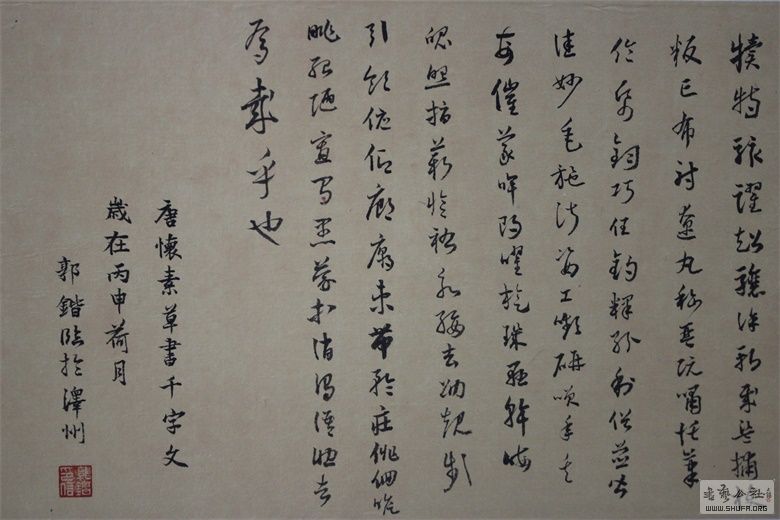 犢特駭躍超驤誅斬賊盜捕獲
叛亡布射遼丸嵇琴阮嘯恬筆
倫紙鈞巧任釣釋紛利俗並皆
佳妙毛施淑姿工嚬妍笑年矢
每催羲暉朗曜旋珠懸斡晦
魄照指薪修祜永綏吉劭矩步
引領俯仰廊廟束帶矜莊徘徊瞻
眺孤陋寡聞愚蒙等誚謂語助者
焉哉乎也
唐懷素草書千字文
歲在丙申荷月
郭鍇臨於澤州
書藝公社
WWW.SHUFA.ORG